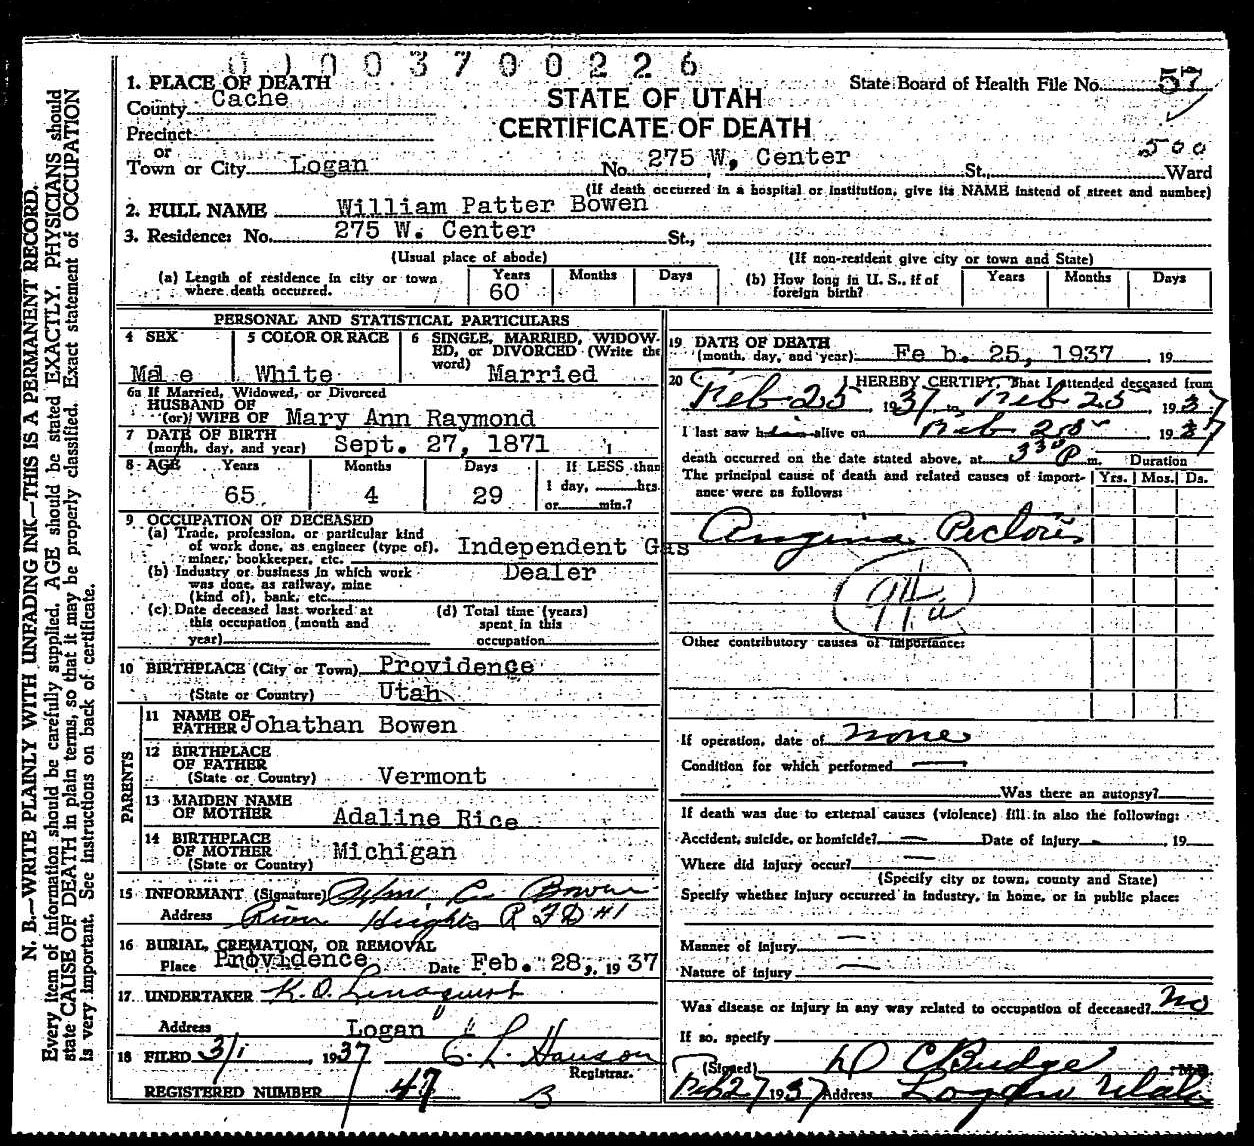 0 0 0 3 7 0 0 2 2 6
1. PLACE OF DEATH
County Cache
Precinct
or
Town or City Logan
STATE OF UTAH
CERTIFICATE OF DEATH
State Board of Health File No. 57
500
No. 275 W. Center St., Ward
(If death occurred in a hospital or institution, give its NAME instead of street and number)
2. FULL NAME William Patter Bowen
3. Residence: No. 275 W. Center St.,
(Usual place of abode) (If non-resident give city or town and State)
(a) Length of residence in city or town where death occurred. Years 60 Months Days
(b) How long in U. S., if of foreign birth? Years Months Days
PERSONAL AND STATISTICAL PARTICULARS
4 SEX Male
5 COLOR OR RACE White
6 SINGLE, MARRIED, WIDOWED, or DIVORCED (Write the word) Married
6a If Married, Widowed, or Divorced
HUSBAND OF
(or) WIFE OF Mary Ann Raymond
7 DATE OF BIRTH
(month, day, and year) Sept. 27, 1871
8 AGE Years 65 Months 4 Days 29 If LESS than 1 day, hrs. or min.?
9 OCCUPATION OF DECEASED
(a) Trade, profession, or particular kind
of work done, as engineer (type of),
miner, bookkeeper, etc. Independent Gas Dealer
(b) Industry or business in which work
was done, as railway, mine
(kind of), bank, etc.
(c) Date deceased last worked at
this occupation (month and
year)
(d) Total time (years)
spent in this
occupation
10 BIRTHPLACE (City or Town) Providence
(State or Country) Utah
PARENTS
11 NAME OF
FATHER Johathan Bowen
12 BIRTHPLACE
OF FATHER
(State or Country) Vermont
13 MAIDEN NAME
OF MOTHER Adaline Rice
14 BIRTHPLACE
OF MOTHER
(State or Country) Michigan
15 INFORMANT (Signature) Bowen
Address River Heights R F D #1
16 BURIAL, CREMATION, OR REMOVAL
Place Providence Date Feb. 28, 1937
17 UNDERTAKER K. O. Lindquist
Address Logan
18 FILED 3/1, 1937 C. L. Hanson
Registrar.
REGISTERED NUMBER 47
19 DATE OF DEATH
(month, day, and year) Feb. 25, 1937, 19
20 I HEREBY CERTIFY, That I attended deceased from
Feb 25 1937 to Feb 25 1937
I last saw him alive on Feb 25 1937
death occurred on the date stated above, at 3 30 P m. Duration
The principal cause of death and related causes of importance were as follows: Yrs. Mos. Ds.
Angina Pectoris
94a
Other contributory causes of importance:
If operation, date of none
Condition for which performed —
Was there an autopsy?
If death was due to external causes (violence) fill in also the following:
Accident, suicide, or homicide? — Date of injury - , 19
Where did injury occur? —
(Specify city or town, county and State)
Specify whether injury occurred in industry, in home, or in public place:
Manner of injury —
Nature of injury —
Was disease or injury in any way related to occupation of deceased? No
If so, specify
(Signed) D C Budge M.D.
Feb 27 1937 Address Logan Utah
N. B.—WRITE PLAINLY WITH UNFADING INK—THIS IS A PERMANENT RECORD.
Every item of information should be carefully supplied. AGE should be stated EXACTLY. PHYSICIANS should
state CAUSE OF DEATH in plain terms, so that it may be properly classified. Exact statement of OCCUPATION
is very important. See instructions on back of certificate.